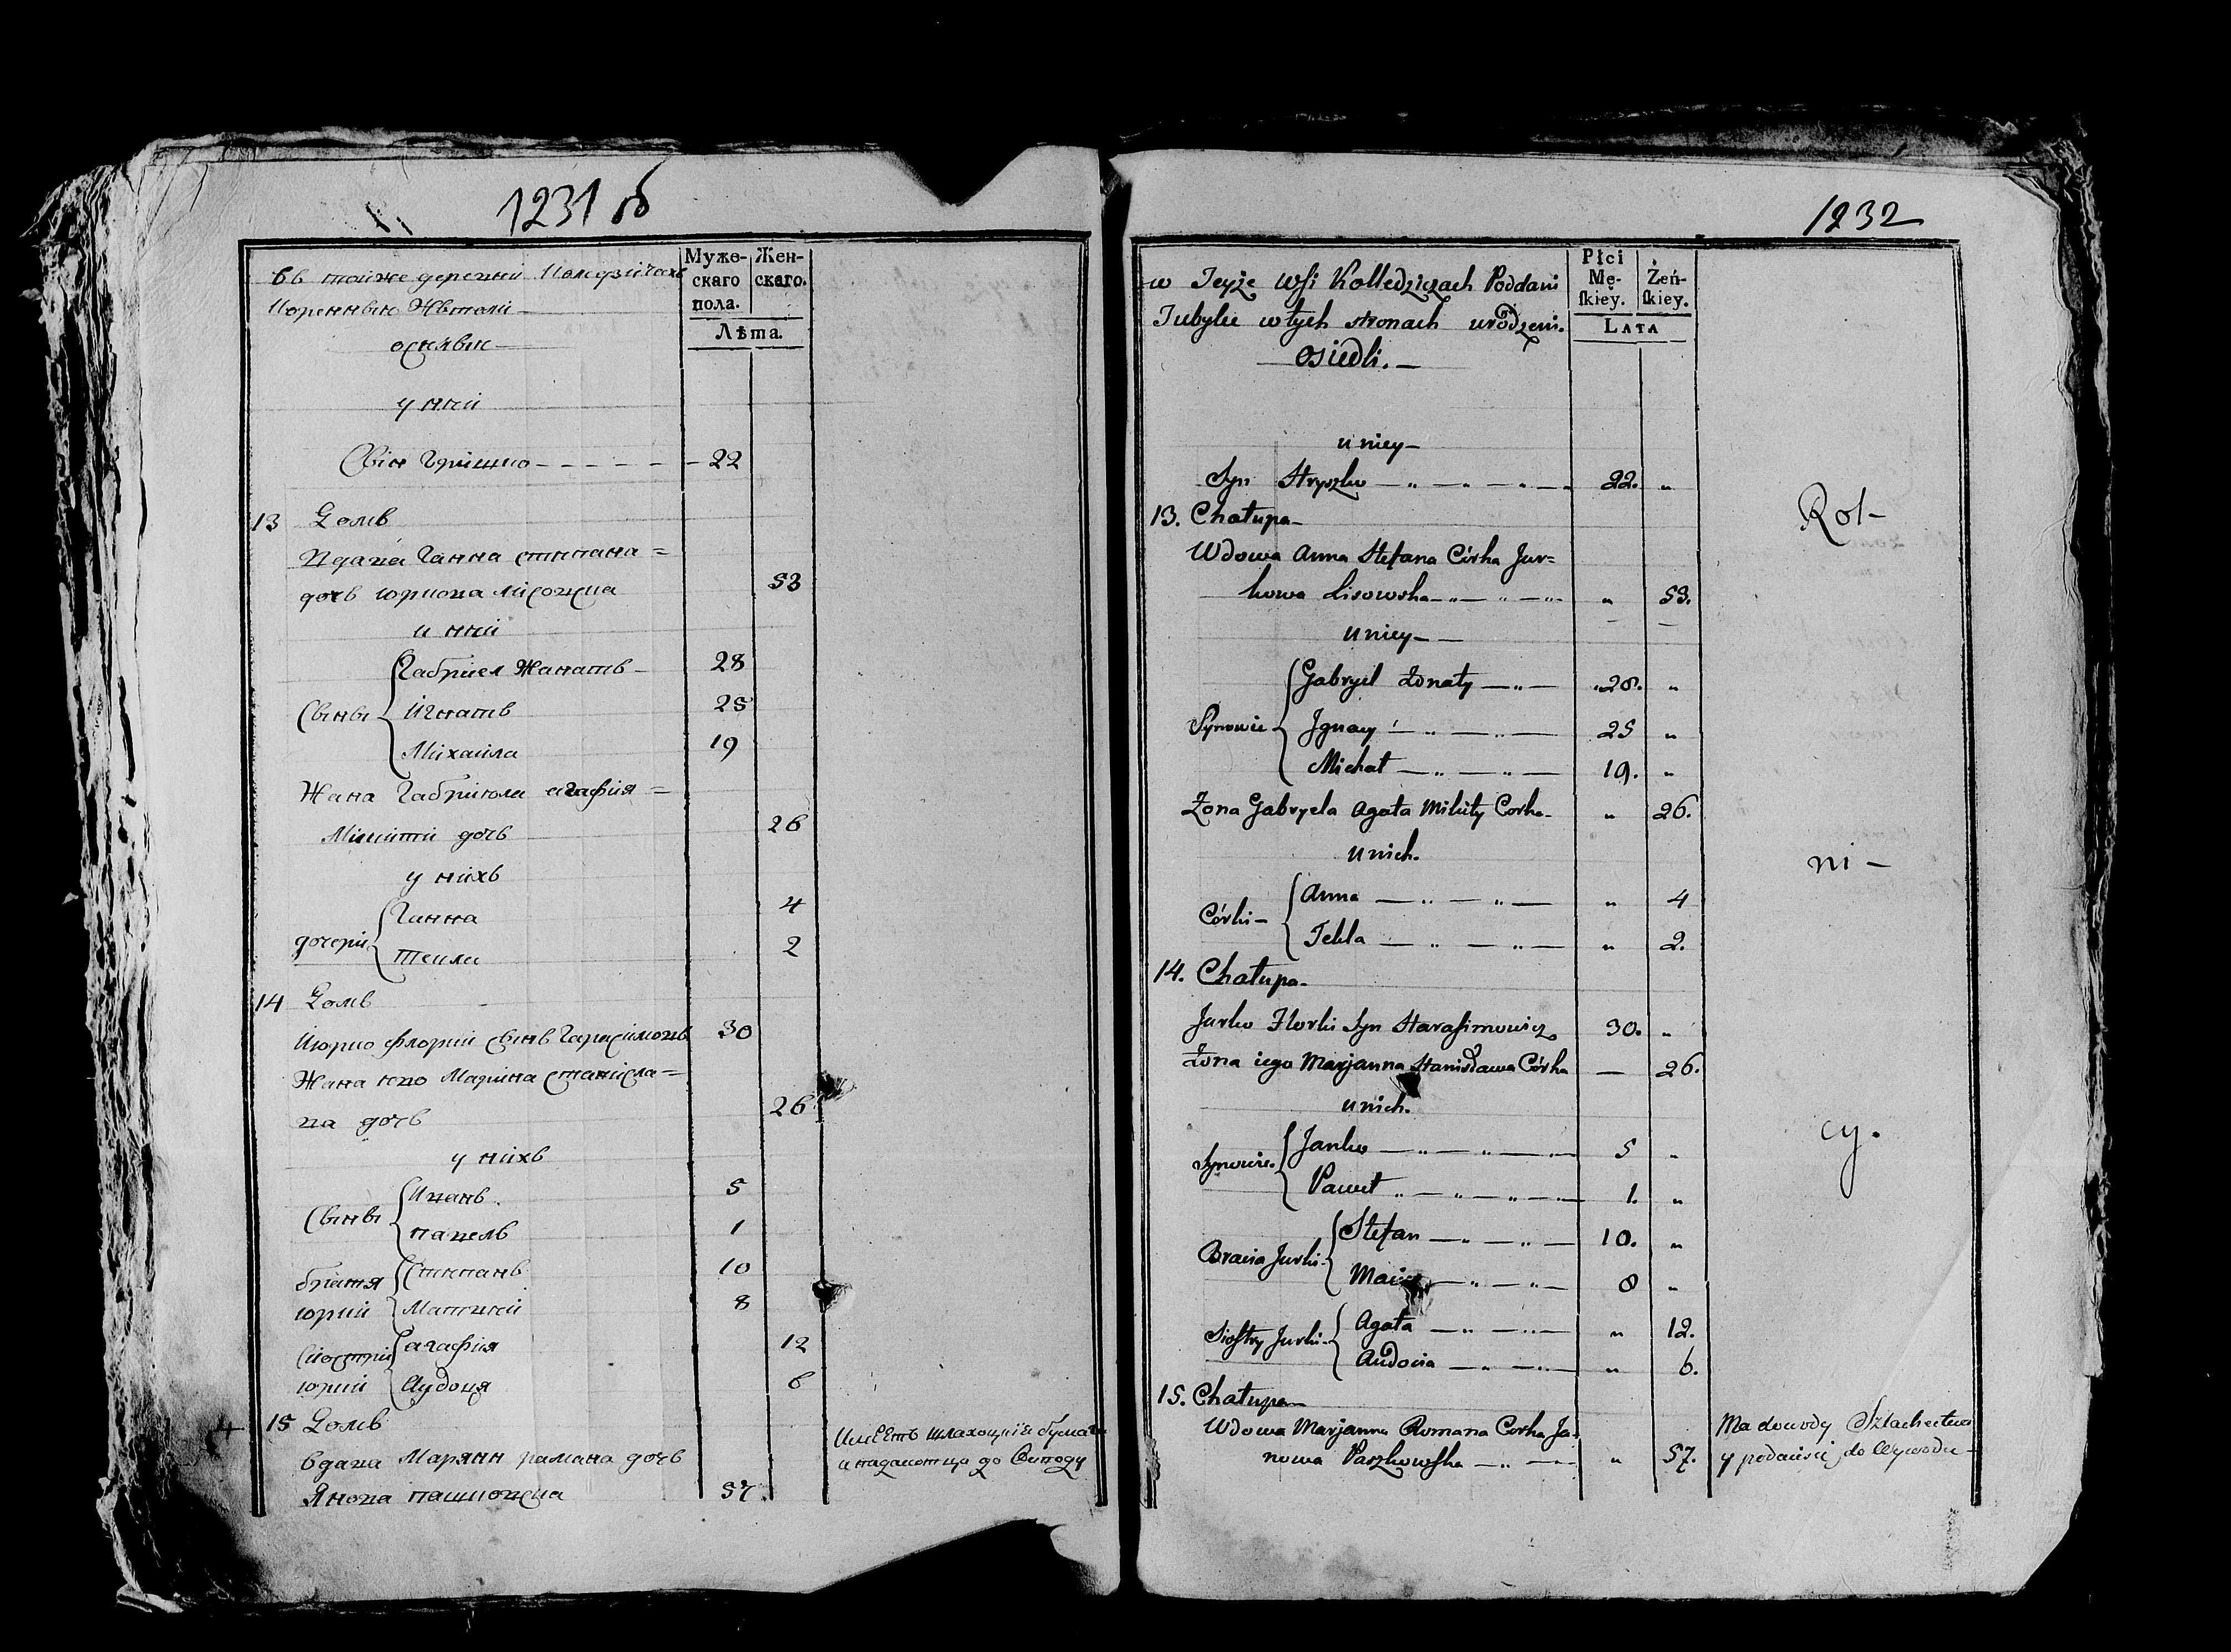 1231 об
Муже-
скаго
пола.
Жен-
скаго.
Лѣта.
Въ тойже деревни Коледзичахъ
Коренные Жѣтели
оселые
у ней
Сын Гришко - - - - - - 22
13 Домъ
Вдава Ганна степана =
дочь юркова лисовска 53
и ней
Сыны
Габриел Жанатъ - 28
Игнатъ 25
Михайла 19
Жана Габриюла агафия =
Микити дочь 26
у нихъ
дочери
Ганна 4
Текля 2
14 Домъ
Июрко флорки сынъ Гарасимовъ 30
Жана його Марина станисла=
ва дочь 26
у нихъ
Сыны
Иванъ 5
павелъ 1
братя
юрки
Степанъ 10
Матвей 8
Сиостри
юрки
агафия 12
Аудоця 6
4 15 Домъ
вдава Марянн рамана дочь
Янова пашковска 57.
Имеетъ шляхоцкие бумаги
1232
Płci
Mę-
skiey.
Żeń-
skiey.
LATA
w Teyże Wsi Kolledziczach Poddani
Tubylce w tych stronach urodzeni.
Osiedli. —
u niey —
Syn Hryszko — „ — „ — „ — 22. „
13. Chałupa —
Wdowa Anna Stefana Córka Jur=
kowa Lisowska — „ — „ — „ „ 53.
u niey — —
Synowie
Gabryel Żonaty — „ — 28. „
Jgnacy — „ — „ — 25 „
Michał — „ — „ — 19. „
Żona Gabryela Agata Mikity Corka — „ 26.
u nich.
Córki —
Anna — „ — „ — „ 4
Tekla — „ — „ — „ 2.
14. Chałupa —
Jurko Florki Syn Harasimowicz 30. „
Żona iego Marjanna Stanisława Córka — 26.
u nich.
Synowie
Janko — „ — „ — „ — 5 „
Paweł „ — „ — „ — „ — 1. „
Bracia Jurki —
Stefan — „ — „ — 10. „
Maciey — „ — „ — 8 „
Siostry Jurki —
Agata — „ — „ — „ 12.
Audocia — „ — „ — „ 6.
15. Chałupa —
Wdowa Marjanna Romana Corka Ja-
nowa Paszkowska — „ — „ 57.
Rol —
ni —
cy.
Ma dowody Szlachectwa
y podaieśię do Wywodu —